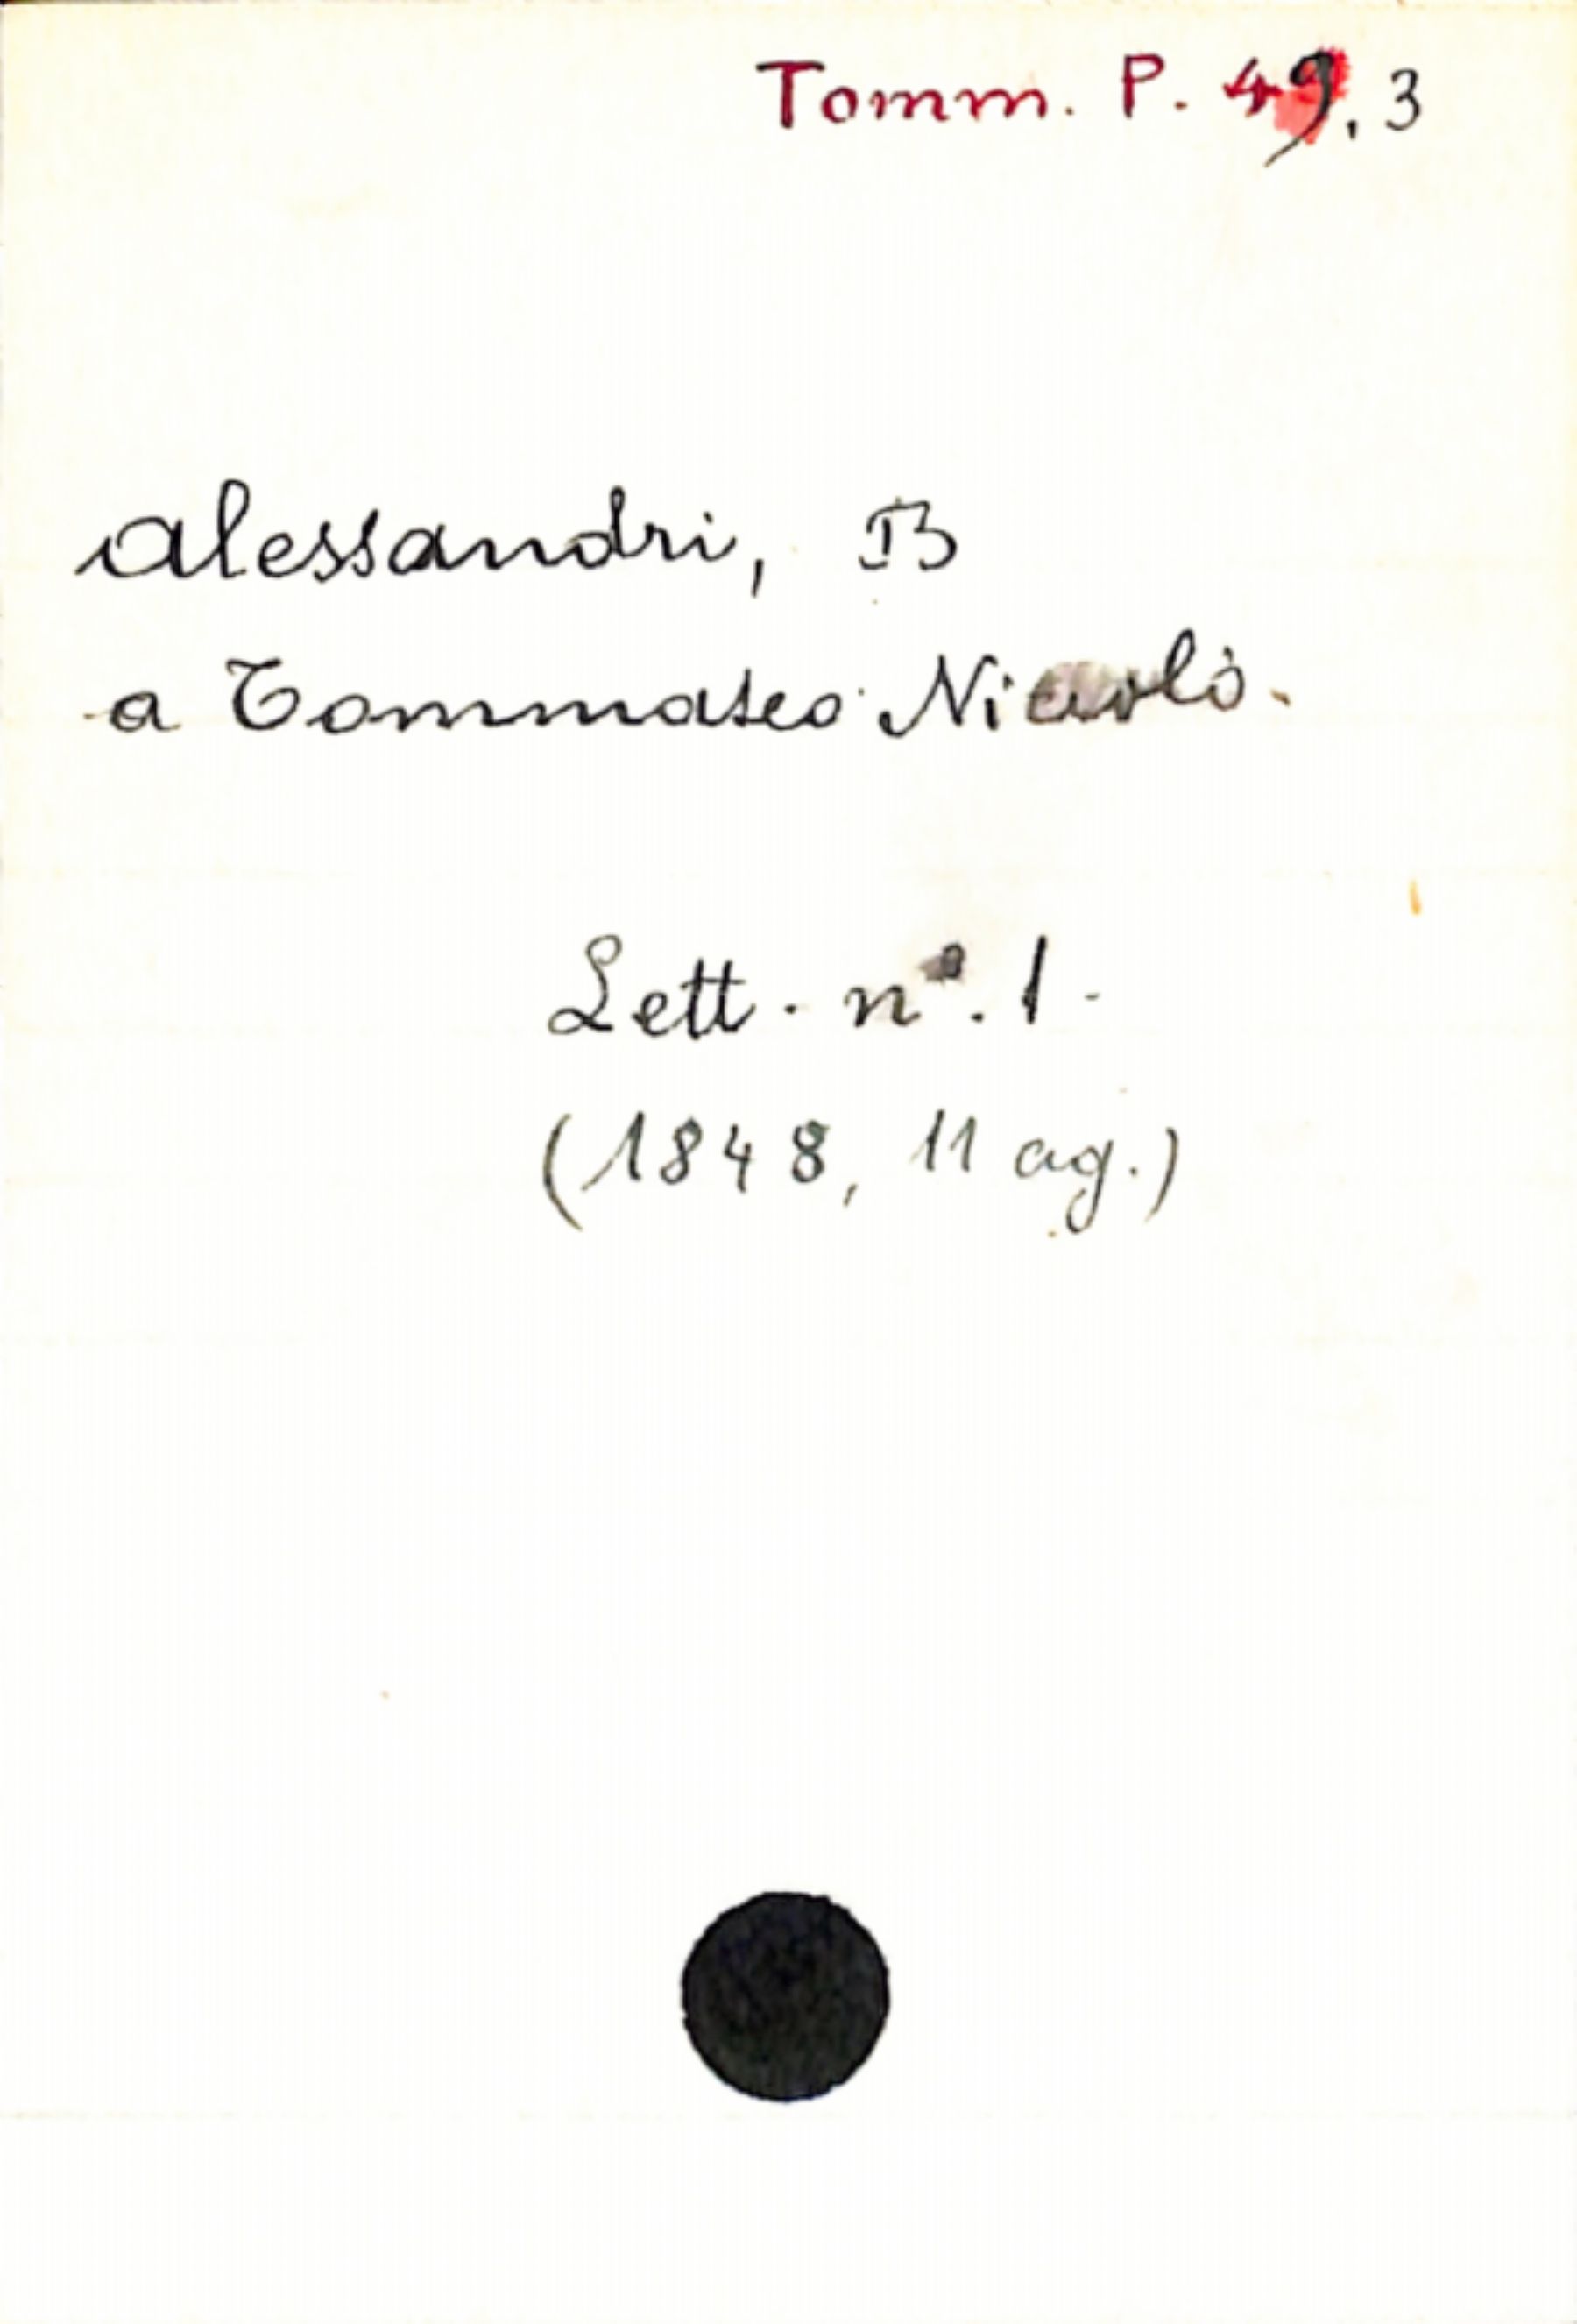 Tomm. P. 49. 3
Alessandri, B
a Tommaseo Nicolò.
Lett. nº. 1.
(1848, 11 ag.)